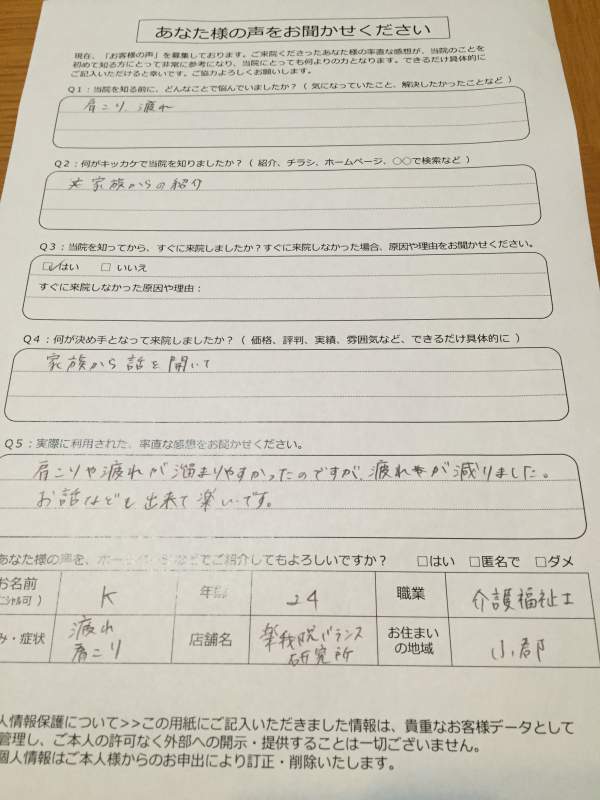 あなた様の声をお聞かせください
現在、「お客様の声」を募集しております。ご来院くださったあなた様の率直な感想が、当院のことを
初めて知る方にとって非常に参考になり、当院にとっても何よりの力となります。できるだけ具体的に
ご記入いただけると幸いです。ご協力よろしくお願いします。
Q1：当院を知る前に、どんなことで悩んでいましたか？（ 気になっていたこと、解決したかったことなど ）
肩こり、疲れ
Q2：何がキッカケで当院を知りましたか？（ 紹介、チラシ、ホームページ、〇〇で検索など ）
家族からの紹介
Q3：当院を知ってから、すぐに来院しましたか？すぐに来院しなかった場合、原因や理由をお聞かせください。
☑はい　□ いいえ
すぐに来院しなかった原因や理由：
Q4：何が決め手となって来院しましたか？（ 価格、評判、実績、雰囲気など、できるだけ具体的に ）
家族から話を聞いて
Q5：実際に利用された、率直な感想をお聞かせください。
肩こりや疲れが溜まりやすかったのですが、疲れが減りました。
お話なども出来て楽しいです。
あなた様の声を、ホームページなどでご紹介してもよろしいですか？　□はい　□匿名で　□ダメ
お名前 K 年齢 24 職業 介護福祉士
ニシャル可）
み・症状 疲れ 肩こり 店舗名 楽我院バランス研究所 お住まいの地域 小郡
人情報保護について>>この用紙にご記入いただきました情報は、貴重なお客様データとして
管理し、ご本人の許可なく外部への開示・提供することは一切ございません。
個人情報はご本人様からのお申出により訂正・削除いたします。